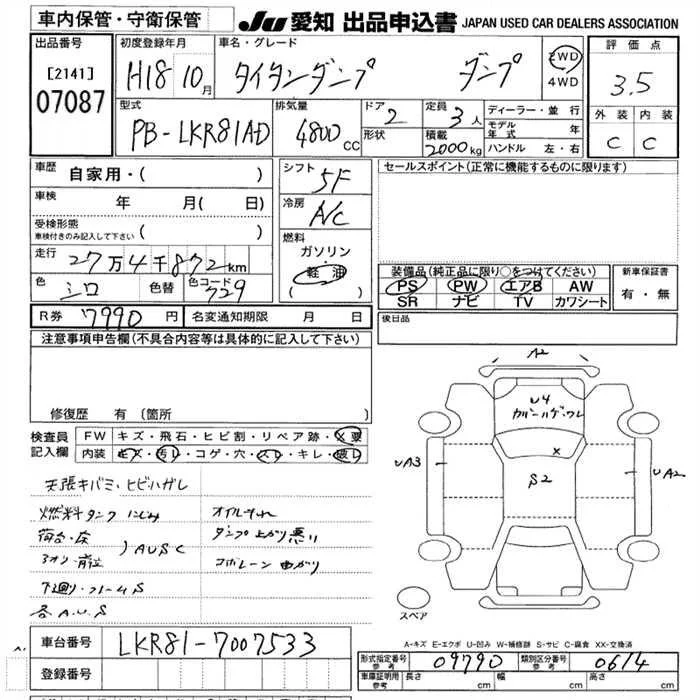 車内保管・守衛保管
JU 愛知 出品申込書 JAPAN USED CAR DEALERS ASSOCIATION
出品番号
[2141]
07087
初度登録年月
H18 10月
車名・グレード
タイタンダンプ ダンプ
2WD
4WD
評価点
3.5
外装 内装
C C
型式
PB-LKR81AD
排気量
4800cc
ドア
2
形状
定員
3人
積載
2000kg
ディーラー・並行
モデル年式 年
ハンドル 左・右
車歴
自家用・( )
車検
年 月( 日)
受検形態
車検付きのみ記入して下さい ( )
走行
27万4千872km
色
シロ
色替
色コード
729
シフト
5F
冷房
A/C
燃料
ガソリン・
軽油
( )
セールスポイント(正常に機能するものに限ります)
装備品(純正品に限り○をつけてください)
PS PW エアB AW
SR ナビ TV カワシート
新車保証書
有・無
R券 7990円 名変通知期限 月 日
後日品
注意事項申告欄(不具合内容等は具体的に記入して下さい)
修復歴 有(箇所
検査員
記入欄
FW キズ・飛石・ヒビ割・リペア跡・X要
内装 キズ・汚レ・コゲ・穴・スレ・キレ・破レ
天張キバミ・ヒビハガレ
燃料タンク にじみ
オイルもれ
荷台・床
3オリ・前位
) AUSC
ダンプ上がり悪い
コボレーン 曲がり
下廻り・フレームS
各 A.U.S
A2
U4
カバーハゲ・ワレ
X
S2
UA3
UA2
スペア
A-キズ E-エクボ U-凹み W-補修跡 S-サビ C-腐食 XX-交換済
車台番号 LKR81-7007533
登録番号
形式指定番号
参考
09790
類別区分番号
参考
0614
車庫証明用
参考
長さ cm
幅 cm
高さ cm